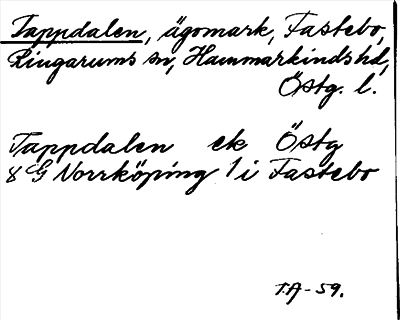 Tappdalen, ägomark, Fastebo,
Ringarums sn, Hammarkinds hd,
Östg. l.
Tappdalen ek Östg
8 G Norrköping 1 i Fastebo
T.A-59.